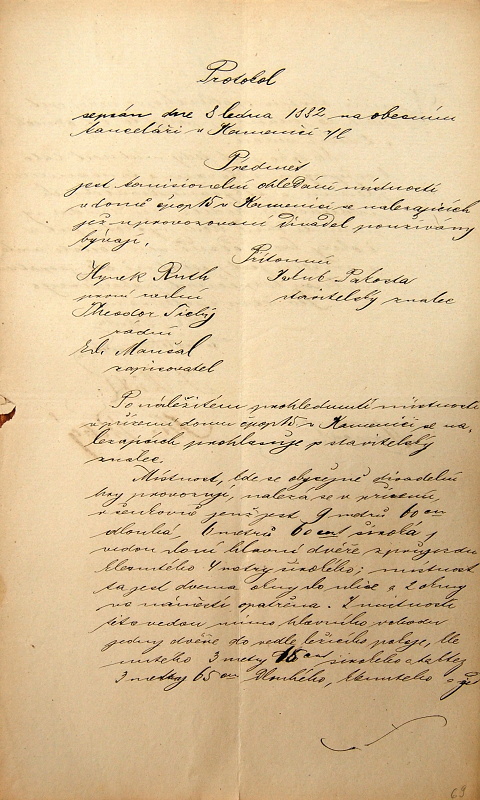 Protokol
sepsán dne 8 ledna 1882 na obecním
kanceláři v Kamenici n/L
Předmět
jest komisionelní ohledání místností
v domě čpop 15 v Kamenici se nalezajících
jež u provozování divadel použivány
bývají.
Přítomní
Hynek Ruth
první radní
Theodor Tichý
radní
Ed. Maušal
zapisovatel
Jakub Pakosta
stavitelský znalec
Po náležitém prohlednutí místností
v přízemí domu čpop 15 v Kamenici se na-
lezajících prohlašuje p stavitelský
znalec.
Místnost, kde se obyčejně divadelní
hry provozují, nalezá se v přízemí,
v šenkovně jenž jest 9 metrů 60 cm
dlouhá, 6 metrů 60 cm široká,
vedou do ní hlavní dvéře z průjezdu
klenutého 4 metry širokého; místnost
ta jest dvema okny do ulice a 2 okny
na náměstí opatřena. Z místnosti
této vedou mimo hlavního vchodu
jedny dvéře do vedle ležícího pokoje, kle-
nutého 3 metry 15 cm širokého a taktéž
3 metry 65 cm dlouhého, klenutého
63